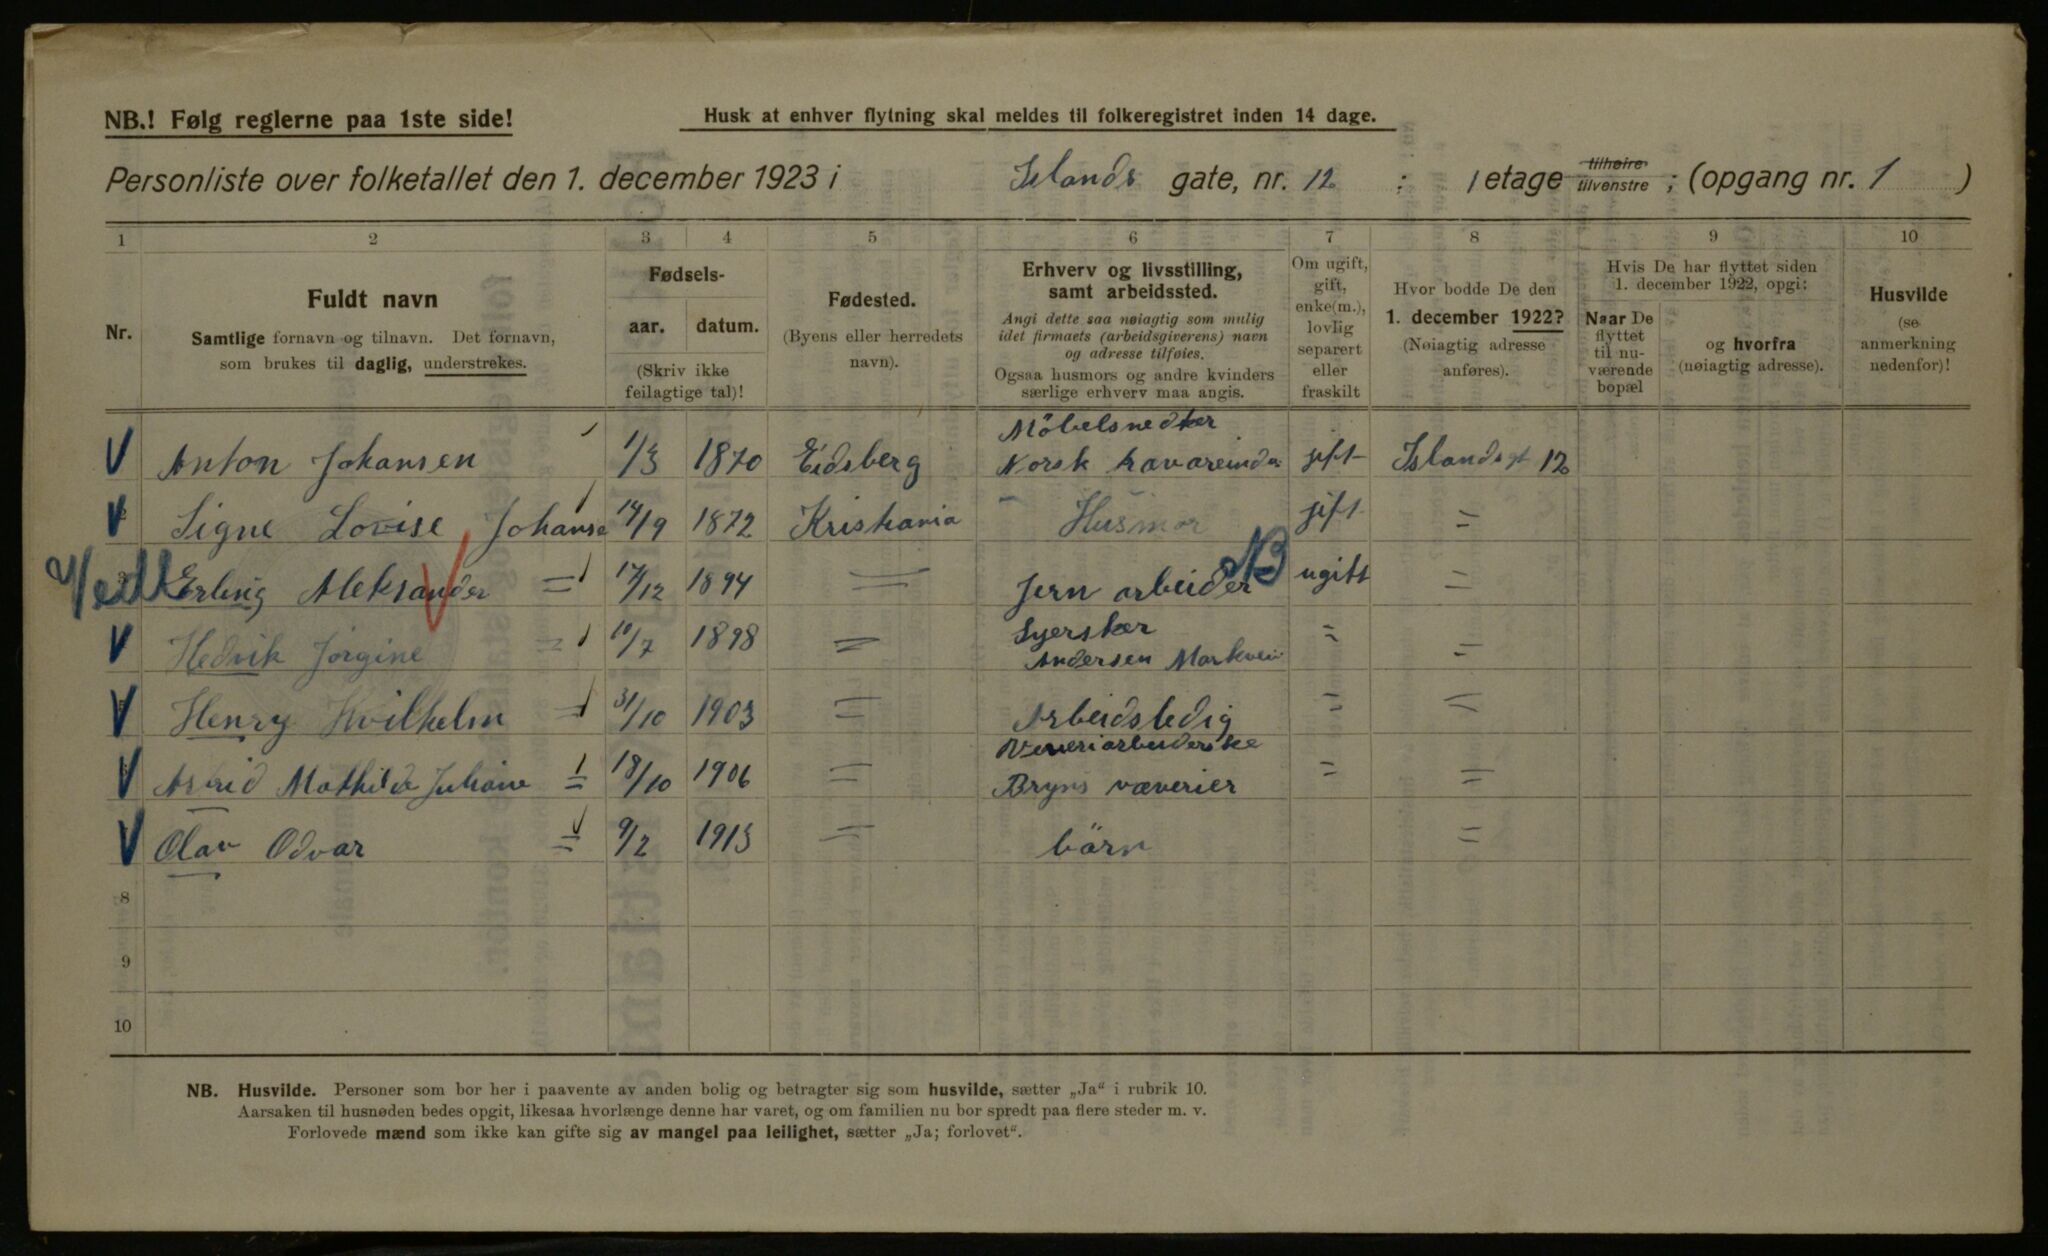 NB.! Følg reglerne paa 1ste side!
Husk at enhver flytning skal meldes til folkeregistret inden 14 dage.
Personliste over folketallet den 1. december 1923 i Islands gate, nr. 12 ; 1 etage tilhøire tilvenstre ; (opgang nr. 1 )
1 2 3 4 5 6 7 8 9 10
Nr.
Fuldt navn
Samtlige fornavn og tilnavn. Det fornavn,
som brukes til daglig, understrekes.
Fødsels-
aar. datum.
(Skriv ikke
feilagtige tal)!
Fødested.
(Byens eller herredets
navn).
Erhverv og livsstilling,
samt arbeidssted.
Angi dette saa nøiagtig som mulig
idet firmaets (arbeidsgiverens) navn
og adresse tilføies.
Ogsaa husmors og andre kvinders
særlige erhverv maa angis.
Om ugift,
gift,
enke(m.),
lovlig
separert
eller
fraskilt
Hvor bodde De den
1. december 1922?
(Nøiagtig adresse
anføres).
Hvis De har flyttet siden
1. december 1922, opgi:
Naar De
flyttet
til nu-
værende
bopæl
og hvorfra
(nøiagtig adresse).
Husvilde
(se
anmerkning
nedenfor)!
Möbelsnedker
V Anton Johansen 1/3 1870 Eidsberg Norsk gift Islandsgt 12
V Signe Lovise Johanse 14/9 1872 Kristiania Husmor gift =
Erling Aleksander = 17/12 1894 = Jern arbeider NB ugift =
Syerske
V Hedvik Jorgine = 10/7 1898 = Andersen Markvei = =
V Henry Hvilhelm = 31/10 1903 = Arbeidsledig = =
Væveriarbeiderske
V Astrid Mathilde Juliane = 18/10 1906 = Bryns væverier = =
V Olav Odvar = 9/2 1913 = börn =
8
9
10
NB. Husvilde. Personer som bor her i paavente av anden bolig og betragter sig som husvilde, sætter „Ja“ i rubrik 10.
Aarsaken til husnøden bedes opgit, likesaa hvorlænge denne har varet, og om familien nu bor spredt paa flere steder m. v.
Forlovede mænd som ikke kan gifte sig av mangel paa leilighet, sætter „Ja; forlovet“.